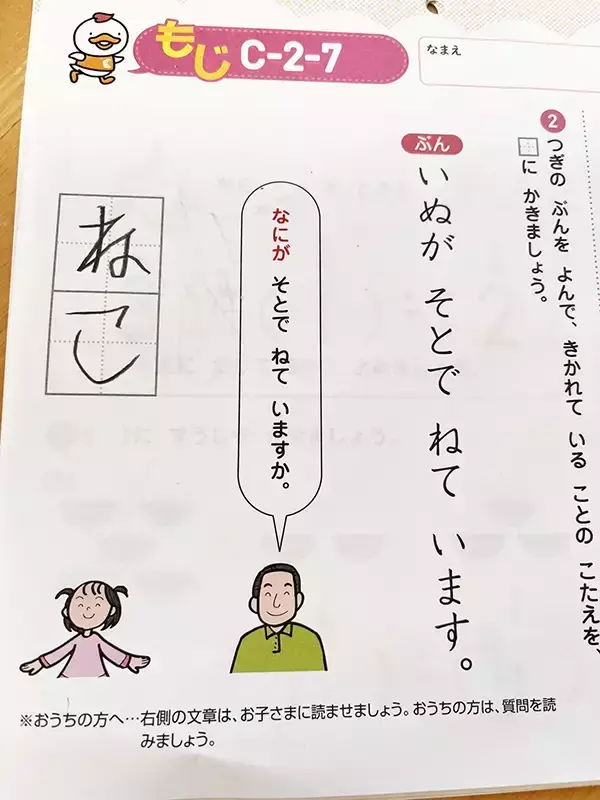 もじ C-2-7
なまえ
2 つぎの ぶんを よんで、きかれて いる ことの こたえを、
□に かきましょう。
ぶん
いぬが そとで ねて います。
なにが そとで ねて いますか。
ねこ
※おうちの方へ…右側の文章は、お子さまに読ませましょう。おうちの方は、質問を読
みましょう。